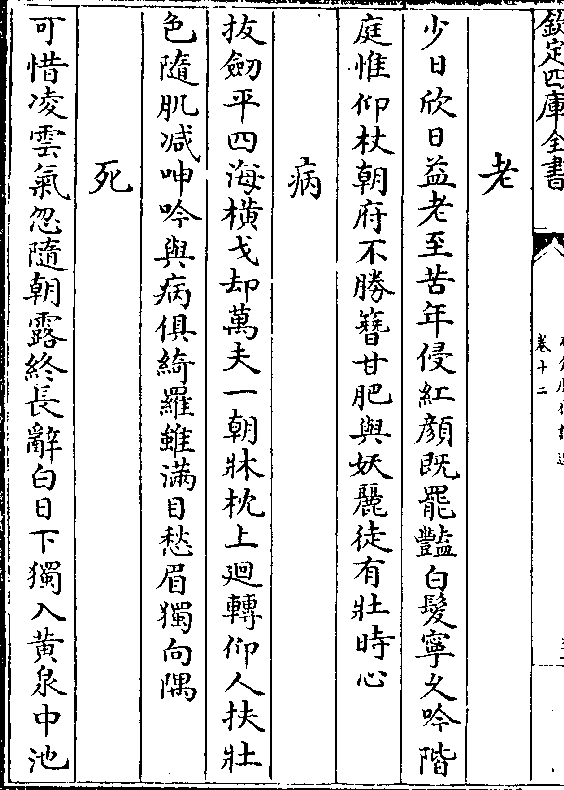 欽定四庫全書
卷十二
老
少日欣日益老至苦年侵紅顔既罷豔白髮寧久吟階
庭惟仰杖朝府不勝簮甘肥與妖麗徒有壯時心
病
抜劒平四海横戈却萬夫一朝牀枕上廻轉仰人扶壯
色隨肌减呻吟與病俱綺羅雖滿目愁眉獨向隅
死
可惜凌雲氣忽隨朝露終長辭白日下獨入黄泉中池